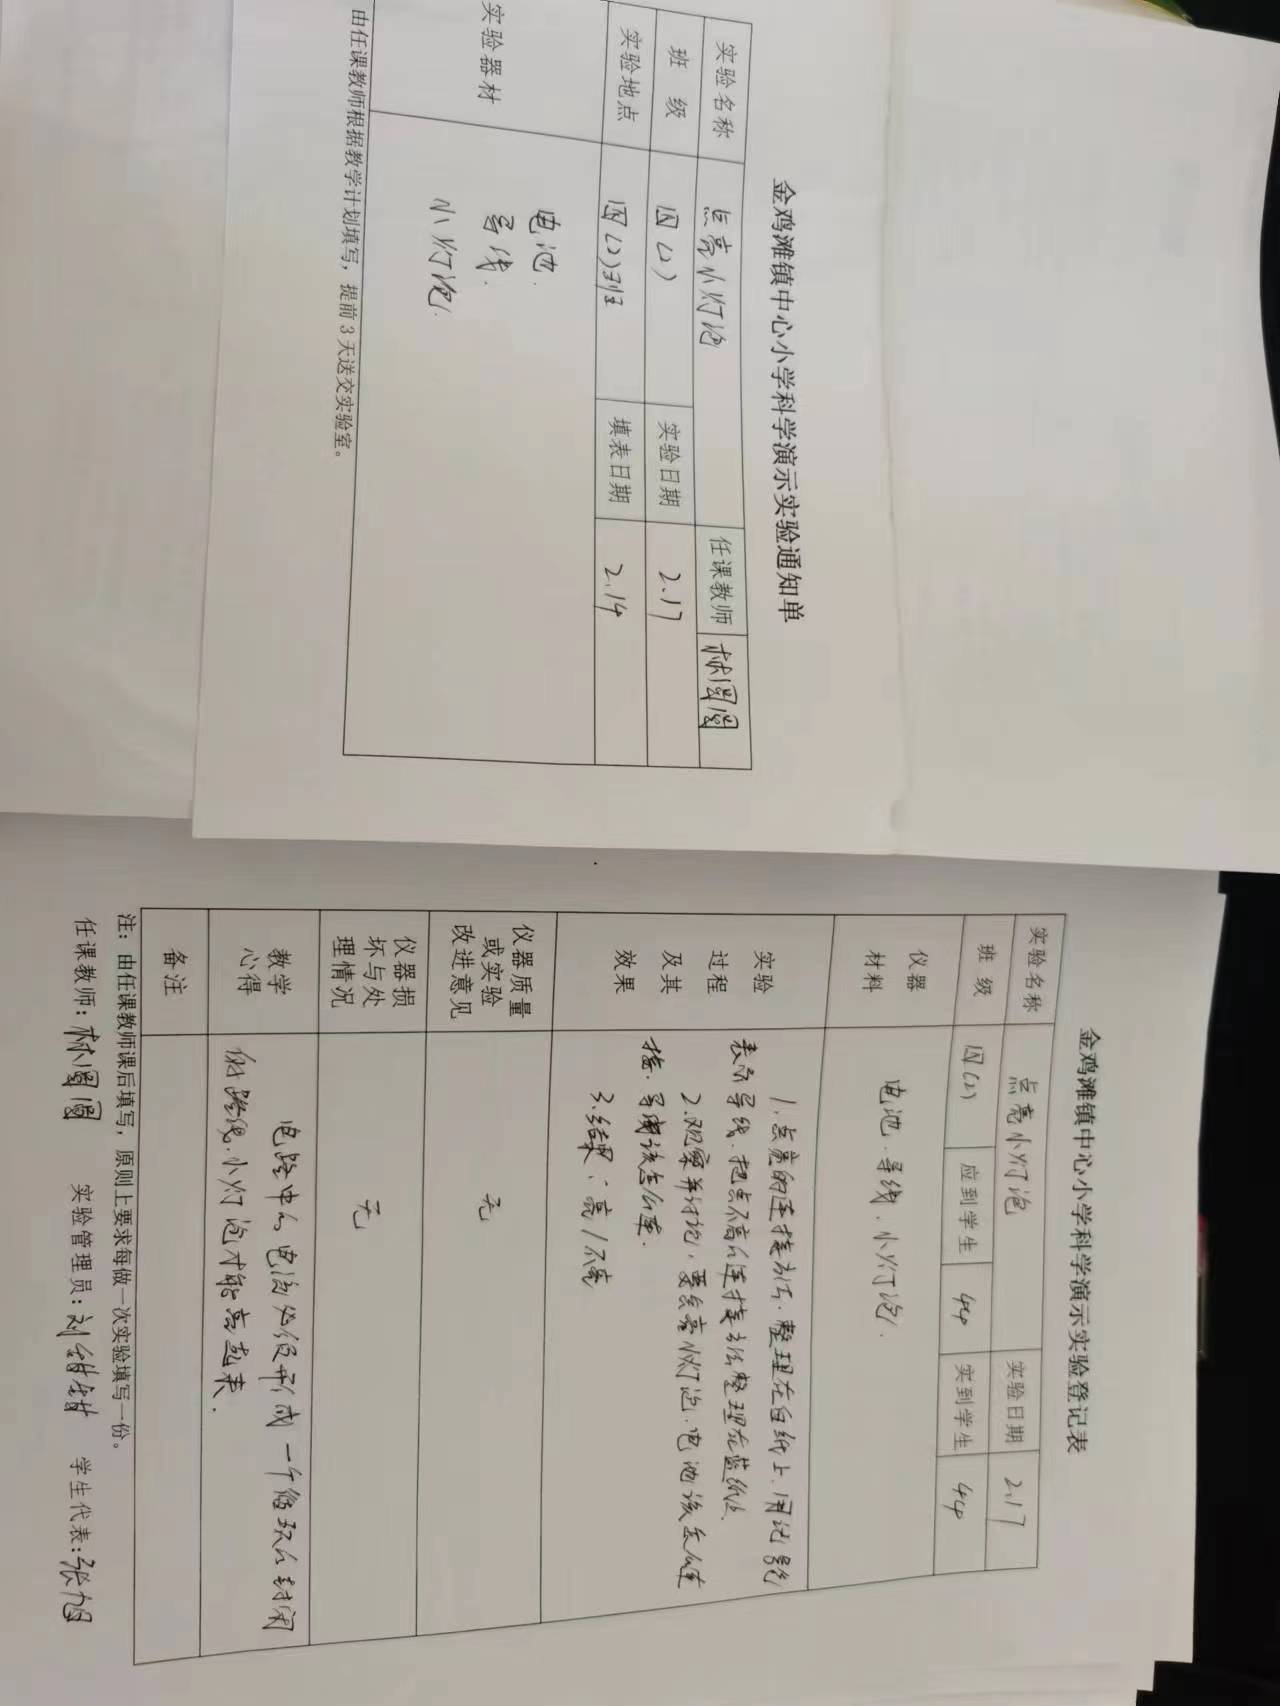 金鸡滩镇中心小学科学演示实验通知单
实验名称 点亮小灯泡 任课教师 林圆圆
班 级 四(2) 实验日期 2.17
实验地点 四(2)班 填表日期 2.14
实验器材
电池.
导线.
小灯泡.
由任课教师根据教学计划填写，提前 3 天送交实验室。
金鸡滩镇中心小学科学演示实验登记表
实验名称 点亮小灯泡 实验日期 2.17
班 级 四(2) 应到学生 44 实到学生 44
仪器
材料
电池.导线.小灯泡.
实验
过程
及其
效果
1.点亮的连接方法.整理在白纸上.用记号笔
表示导线.把点不亮的连接方法整理在蓝纸上
2.观察并讨论.要点亮小灯泡.电池该怎么连
接.导线该怎么连.
3.结果:亮/不亮
仪器质量
或实验
改进意见
无
仪器损
坏与处
理情况
无
教学
心得
电路中的电流必须形成一个循环的封闭
路线.小灯泡才能亮起来.
备注
注：由任课教师课后填写，原则上要求每做一次实验填写一份。
任课教师:林圆圆 实验管理员:刘 学生代表:张旭